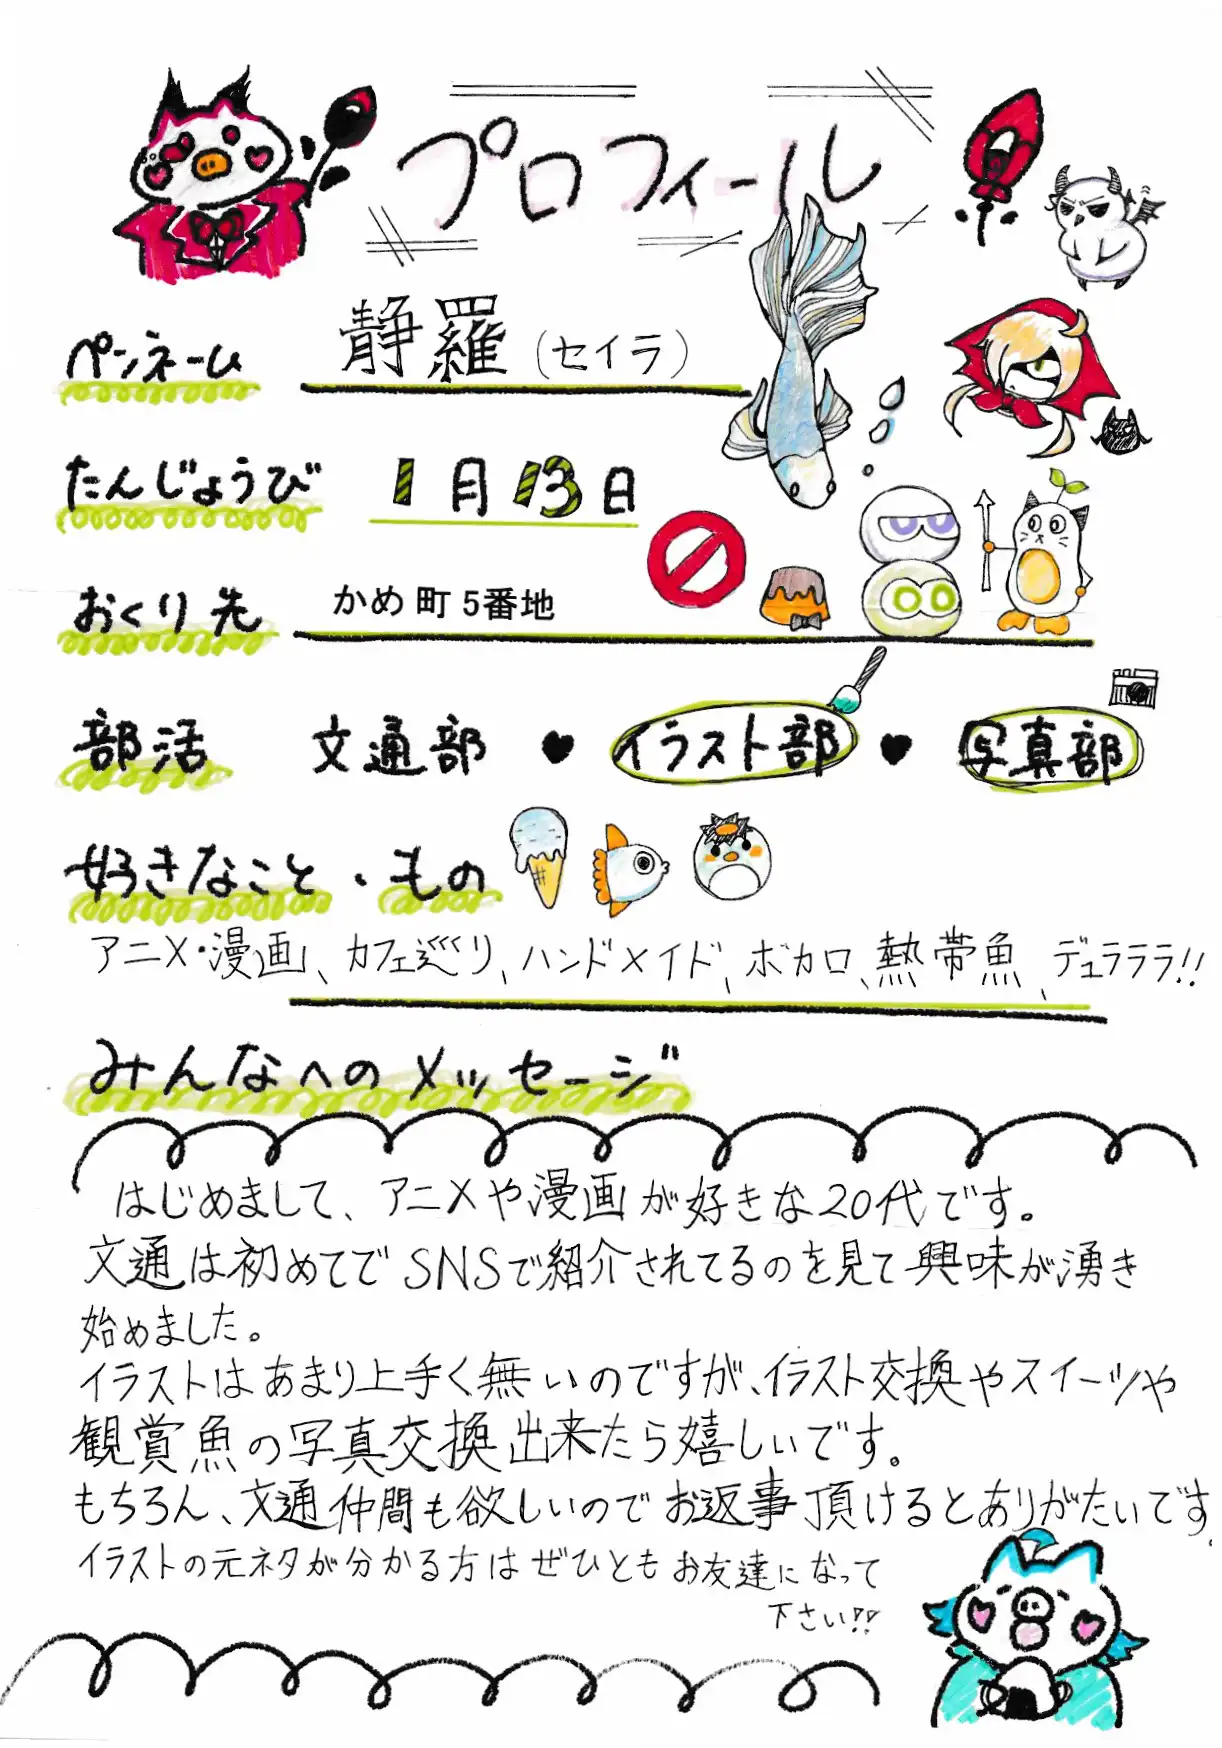 プロフィール
ペンネーム 静羅(セイラ)
たんじょうび 1月13日
おくり先 かめ町5番地
部活 文通部 ♥ イラスト部 ♥ 写真部
好きなこと・もの
アニメ・漫画、カフェ巡り、ハンドメイド、ボカロ、熱帯魚、デュラララ!!
みんなへのメッセージ
はじめまして、アニメや漫画が好きな20代です。
文通は初めてでSNSで紹介されてるのを見て興味が湧き
始めました。
イラストはあまり上手く無いのですが、イラスト交換やスイーツや
観賞魚の写真交換出来たら嬉しいです。
もちろん、文通仲間も欲しいのでお返事頂けるとありがたいです。
イラストの元ネタが分かる方はぜひともお友達になって
下さい!!